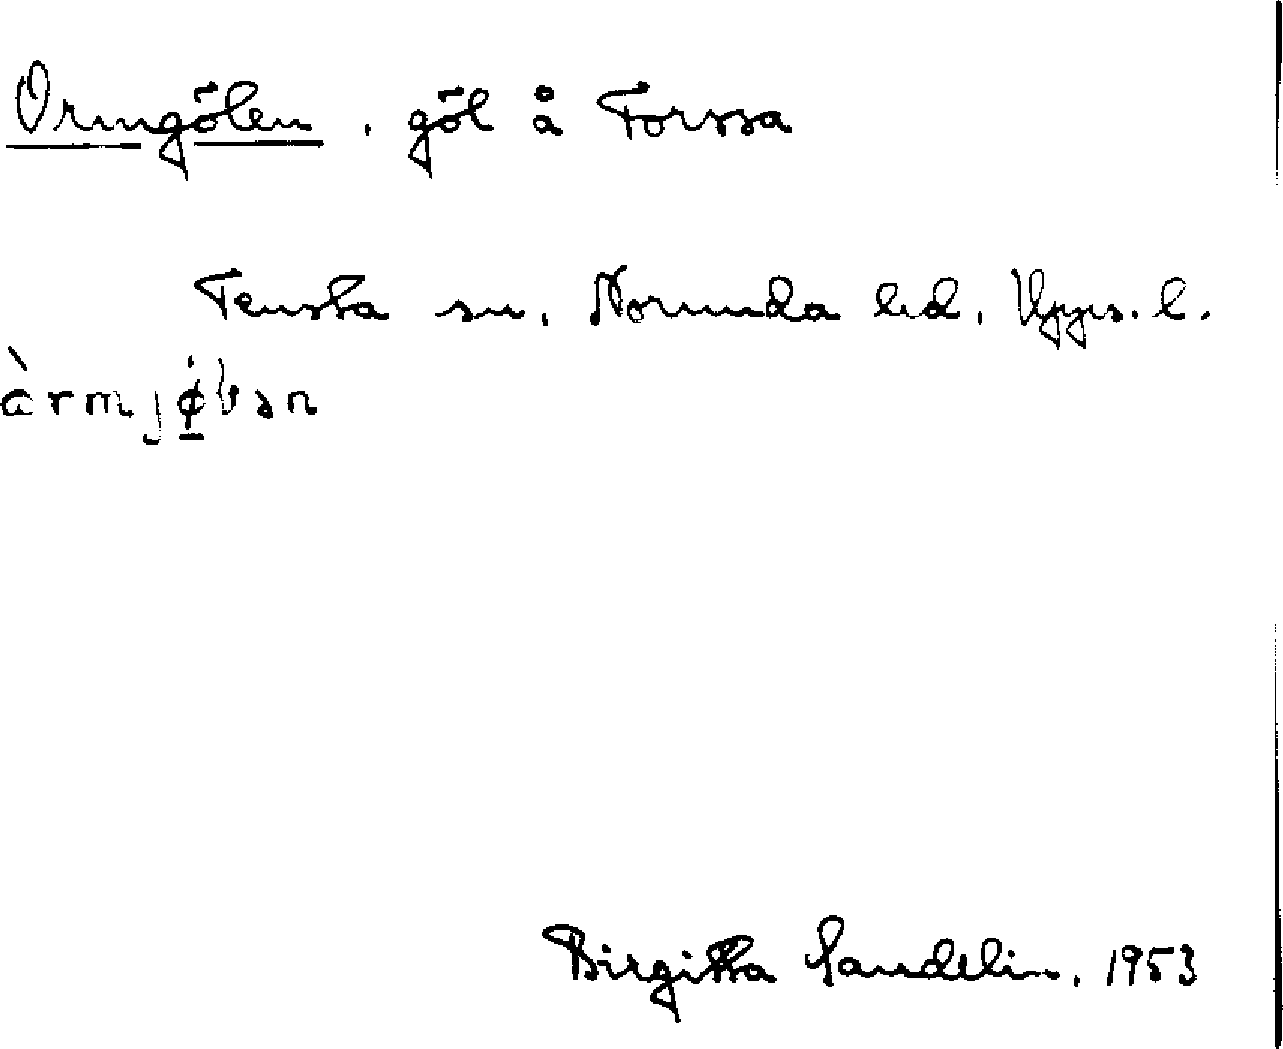 Ormgölen, göl å Forssa
Tensta sn, Norunda hd, Upps. l.
àrmjǿ̲ɫən
Birgitta Sandelin, 1953